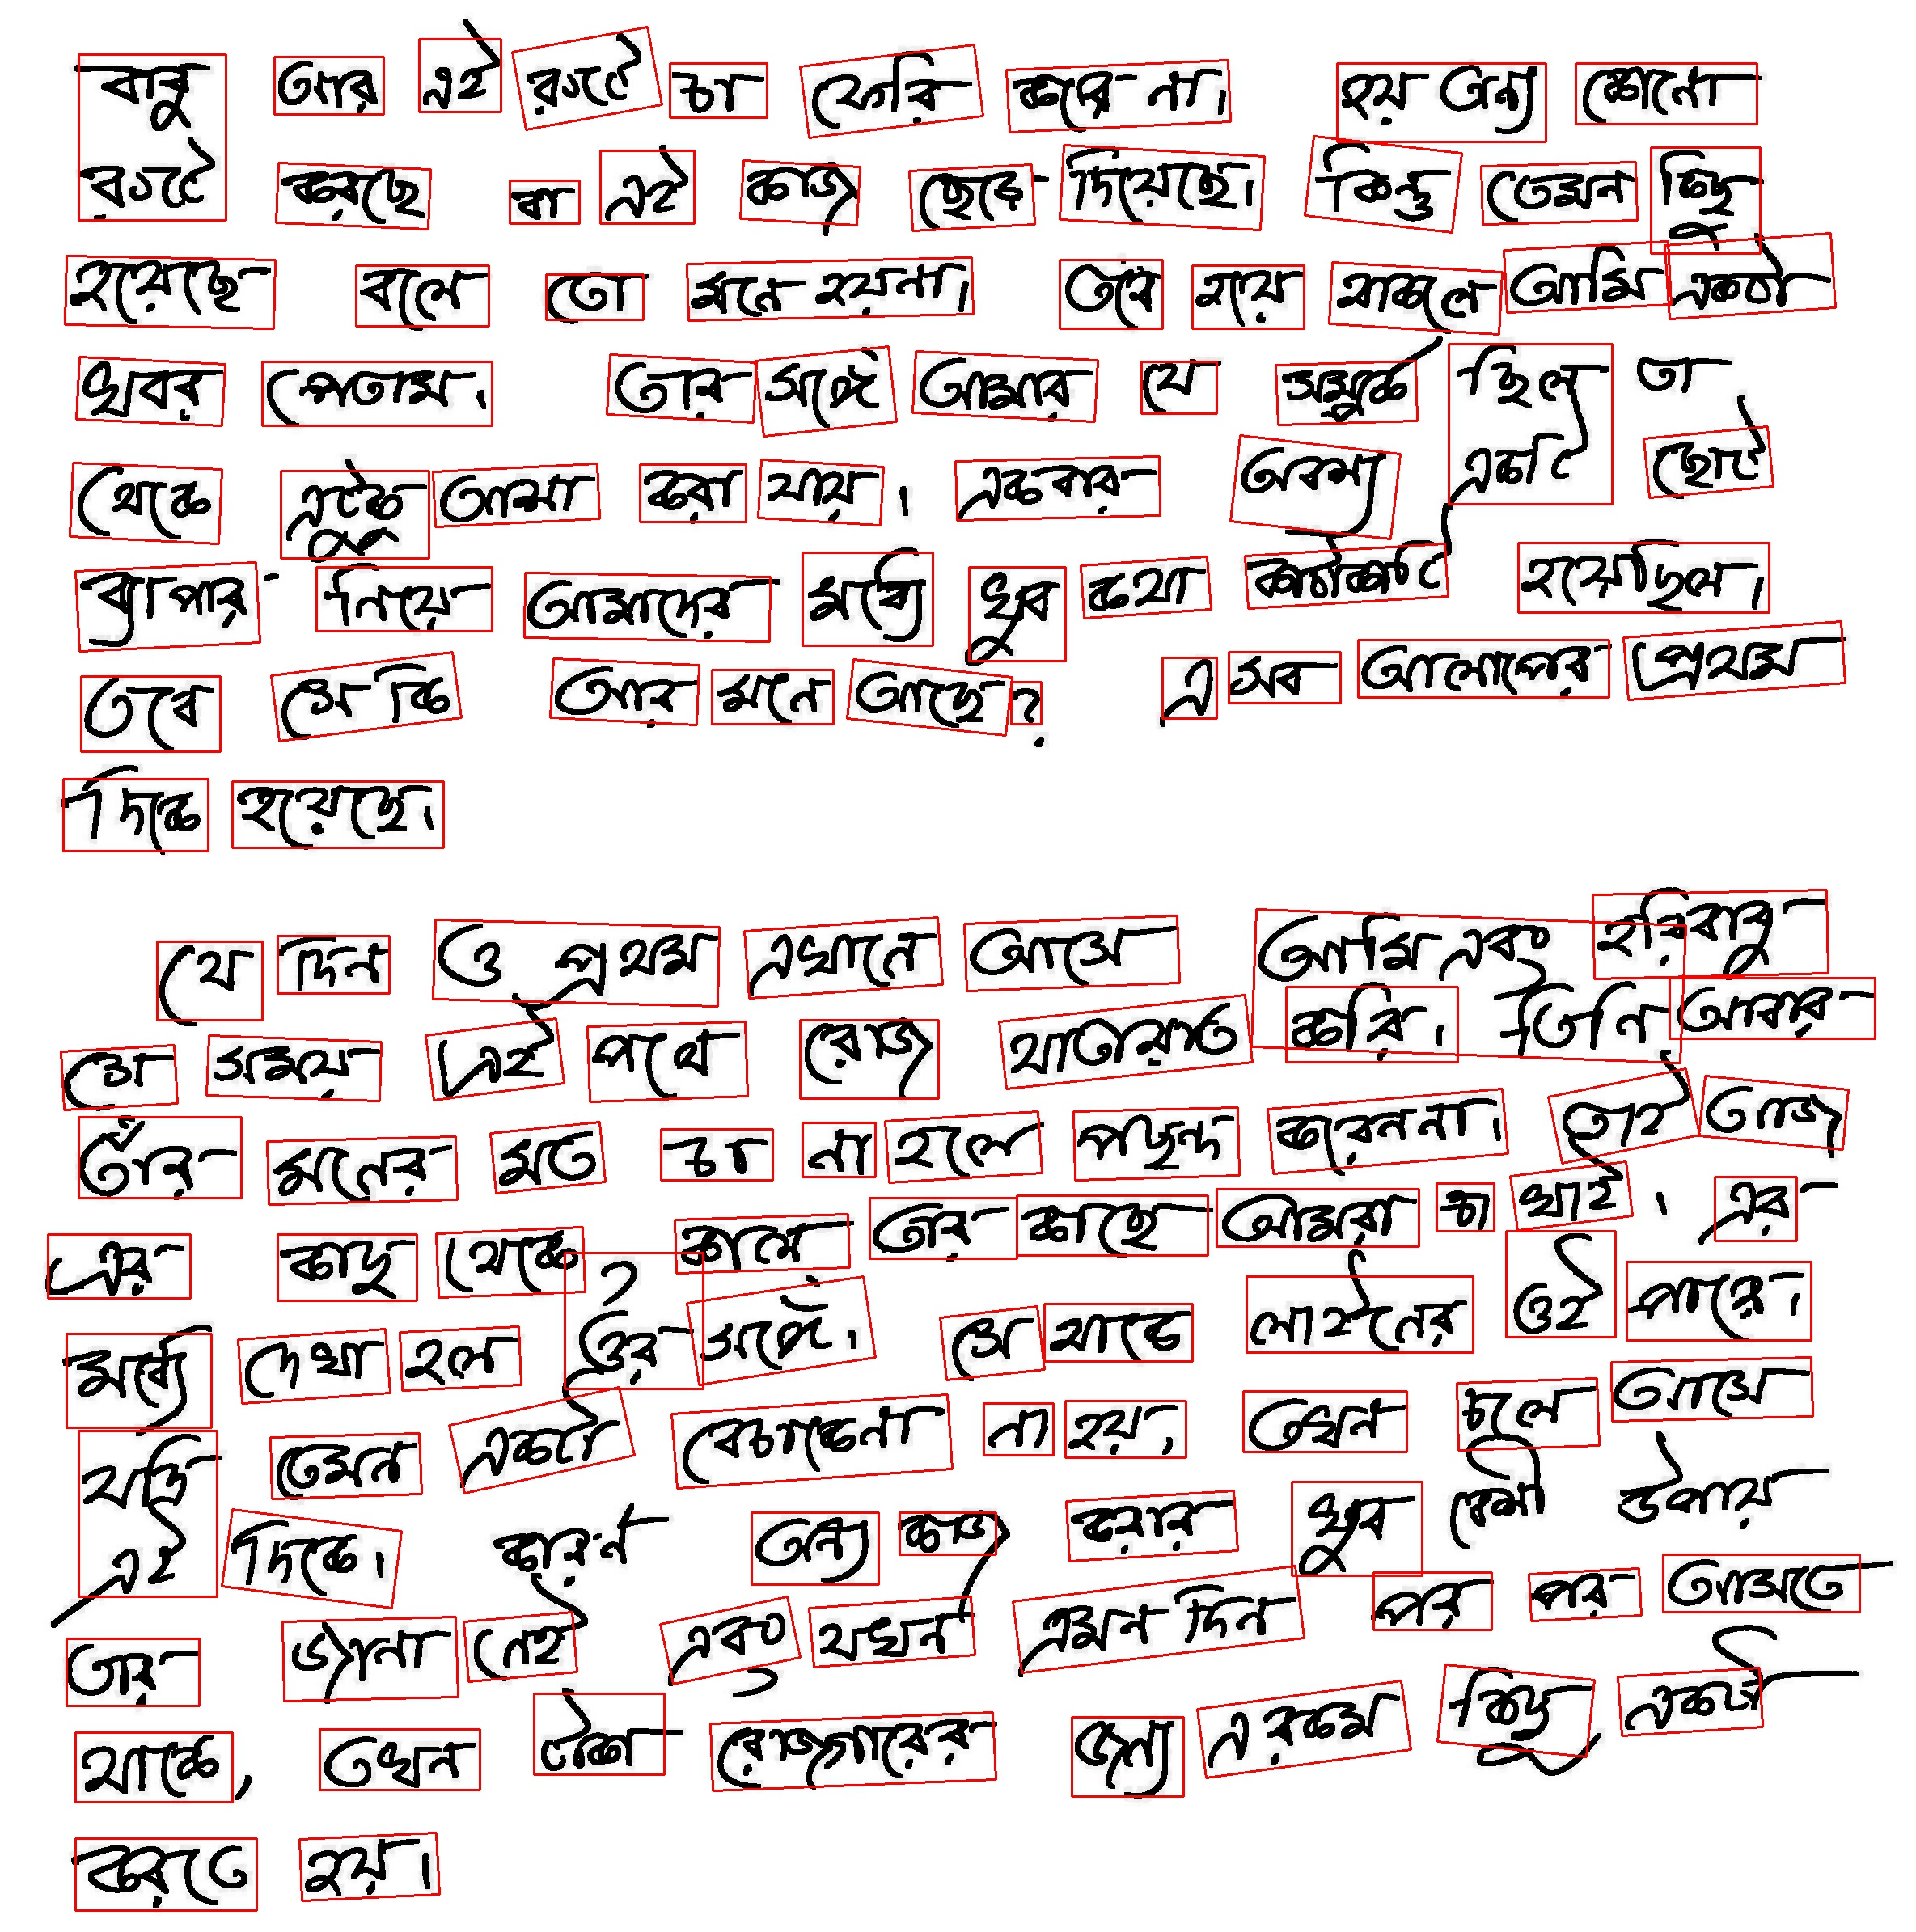 বাবু আর এই রুটে চা ফেরি করে না। হয় অন্য কোনো
রুটে করছে বা এই কাজ ছেড়ে দিয়েছে। কিন্তু তেমন কিছু
হয়েছে বলে তো মনে হয়না। তবে হয়ে থাকলে আমি একটা
খবর পেতাম। তার সঙ্গে আমার যে সম্পর্ক ছিল তা
থেকে এটুকু আশা করা যায়। একবার অবশ্য একটি ছোট
ব্যাপার নিয়ে আমাদের মধ্যে খুব কথা কাটাকাটি হয়েছিল।
তবে সে কি আর মনে আছে? এ সব আলাপের প্রথম
দিকে হয়েছে।
যে দিন ও প্রথম এখানে আসে আমি এবং হরিবাবু
সে সময় এই পথে রোজ যাতায়াত করি। তিনি আবার
তাঁর মনের মত চা না হলে পছন্দ করেননা। তাই আজ
এর কাছ থেকে কাল তার কাছে আমরা চা খাই। এর
মধ্যে দেখা হল ওর সঙ্গে। সে থাকে লাইনের ওই পারে।
যদি তেমন একটা বেচাকেনা না হয়, তখন চলে আসে
এই দিকে। কারণ অন্য কাজ করার খুব বেশী উপায়
তার জানা নেই এবং যখন এমন দিন পর পর আসতে
থাকে, তখন টাকা রোজগারের জন্য এ রকম কিছু একটা
করতে হয়।